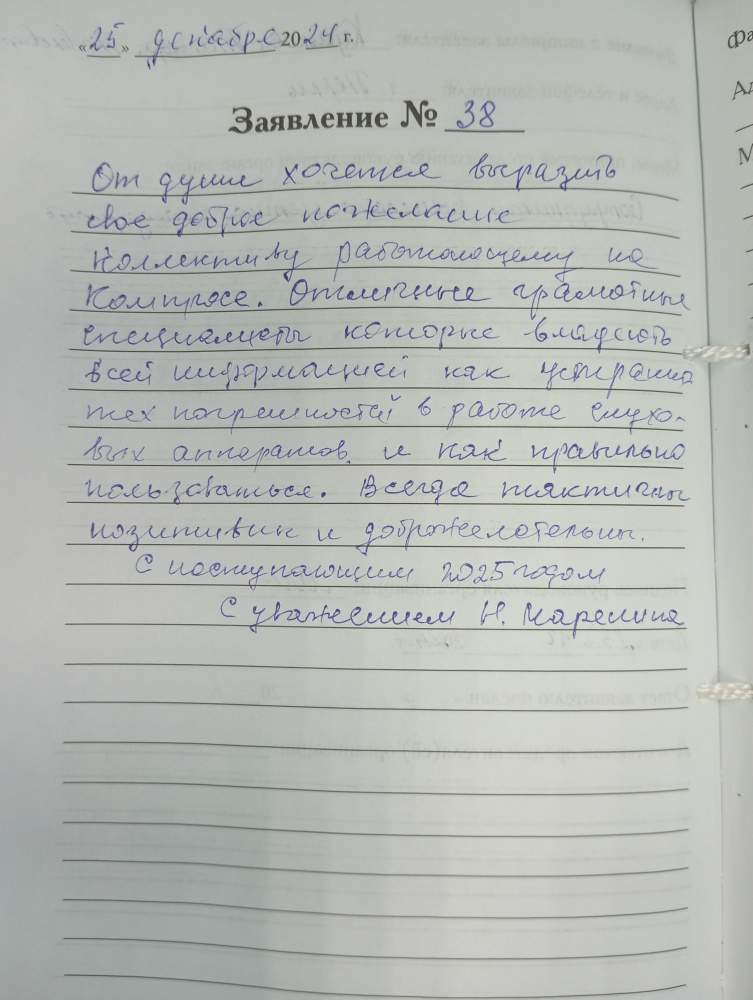 «25» декабре 2024 г.
Заявление № 38
От души хочется выразить
свое доброе пожелание
коллективу работающему на
Компросе. Отличные грамотные
специалисты которые владеють
всей информацией как устранит
тех погрешностей в работе слухо-
вых аппаратов. и как правильно
пользоваться. Всегда тактичны
позитивны и доброжелательны.
С наступающим 2025 годом
С уважением Н. Карелина
Фа
Ад
М